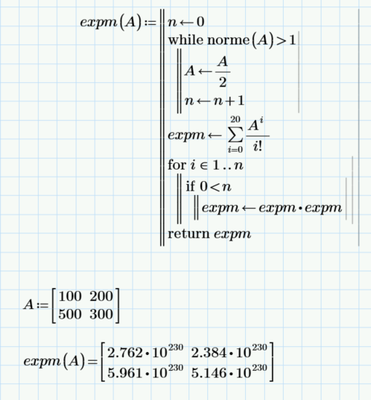 expm(A):=
n←0
while norme(A)>1
A←A/2
n←n+1
expm←∑_{i=0}^{20} A^i/i!
for i∈1..n
if 0<n
expm←expm•expm
return expm
A:=[100 200
500 300]
expm(A)=[2.762•10^230 2.384•10^230
5.961•10^230 5.146•10^230]